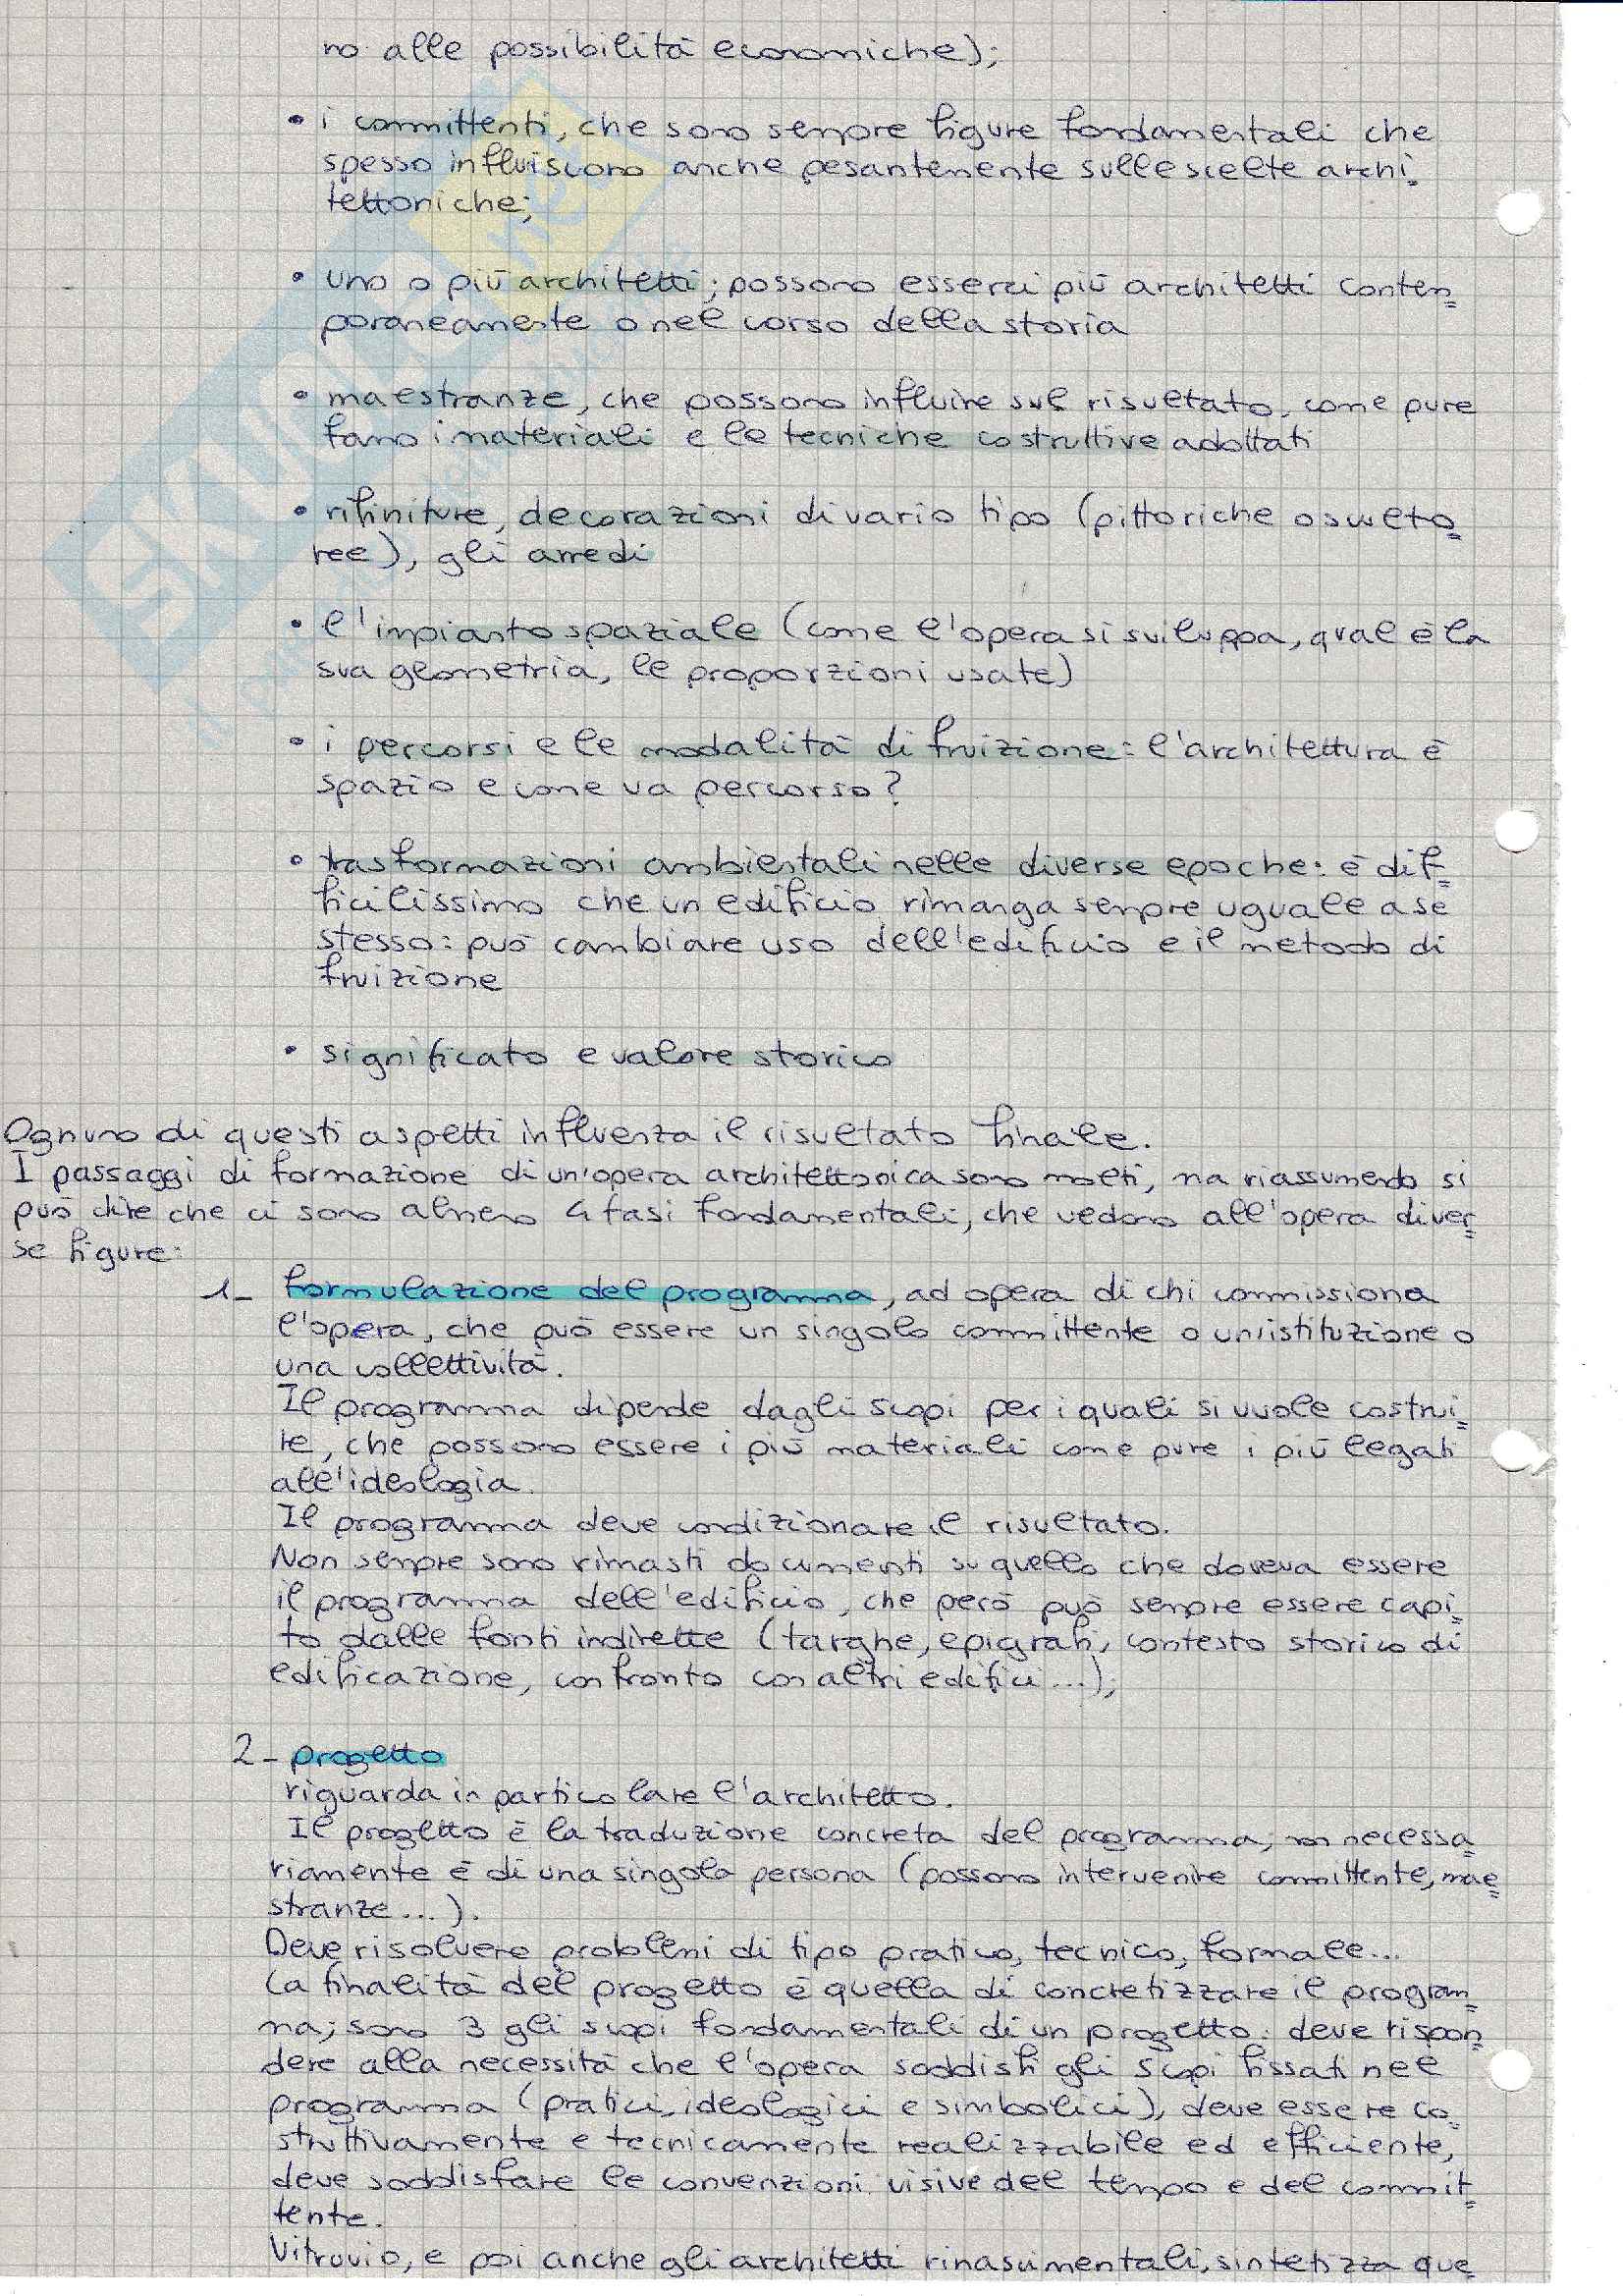 no alle possibilità economiche);
• i committenti, che sono sempre figure fondamentali che
spesso influiscono anche pesantemente sulle scelte archi
tettoniche;
• uno o più architetti; possono esserci più architetti contem
poraneamente o nel corso della storia
• maestranze, che possono influire sul risultato, come pure
fanno i materiali e le tecniche costruttive adottati
• rifiniture, decorazioni di vario tipo (pittoriche o sculto
ree), gli arredi
• l'impianto spaziale (come l'opera si sviluppa, qual è la
sua geometria, le proporzioni usate)
• i percorsi e le modalità di fruizione: l'architettura è
spazio e come va percorso?
• trasformazioni ambientali nelle diverse epoche: è dif
ficilissimo che un edificio rimanga sempre uguale a se
stesso: può cambiare uso dell'edificio e il metodo di
fruizione
• significato e valore storico
Ognuno di questi aspetti influenza il risultato finale.
I passaggi di formazione di un'opera architettonica sono molti, ma riassumendo si
può dire che ci sono almeno 4 fasi fondamentali, che vedono all'opera diver
se figure:
1- formulazione del programma, ad opera di chi commissiona
l'opera, che può essere un singolo committente o un'istituzione o
una collettività.
Il programma dipende dagli scopi per i quali si vuole costrui
re, che possono essere i più materiali come pure i più legati
all'ideologia.
Il programma deve condizionare il risultato.
Non sempre sono rimasti documenti su quello che doveva essere
il programma dell'edificio, che però può sempre essere capi
to dalle fonti indirette (targhe, epigrafi, contesto storico di
edificazione, confronto con altri edifici...);
2- progetto
riguarda in particolare l'architetto.
Il progetto è la traduzione concreta del programma, non necessa
riamente è di una singola persona (possono intervenire committente, mae
stranze...).
Deve risolvere problemi di tipo pratico, tecnico, formale...
La finalità del progetto è quella di concretizzare il program
ma; sono 3 gli scopi fondamentali di un progetto: deve rispon
dere alla necessità che l'opera soddisfi gli scopi fissati nel
programma (pratici, ideologici e simbolici), deve essere co
struttivamente e tecnicamente realizzabile ed efficiente,
deve soddisfare le convenzioni visive del tempo e del commit
tente.
Vitruvio, e poi anche gli architetti rinascimentali, sintetizza que